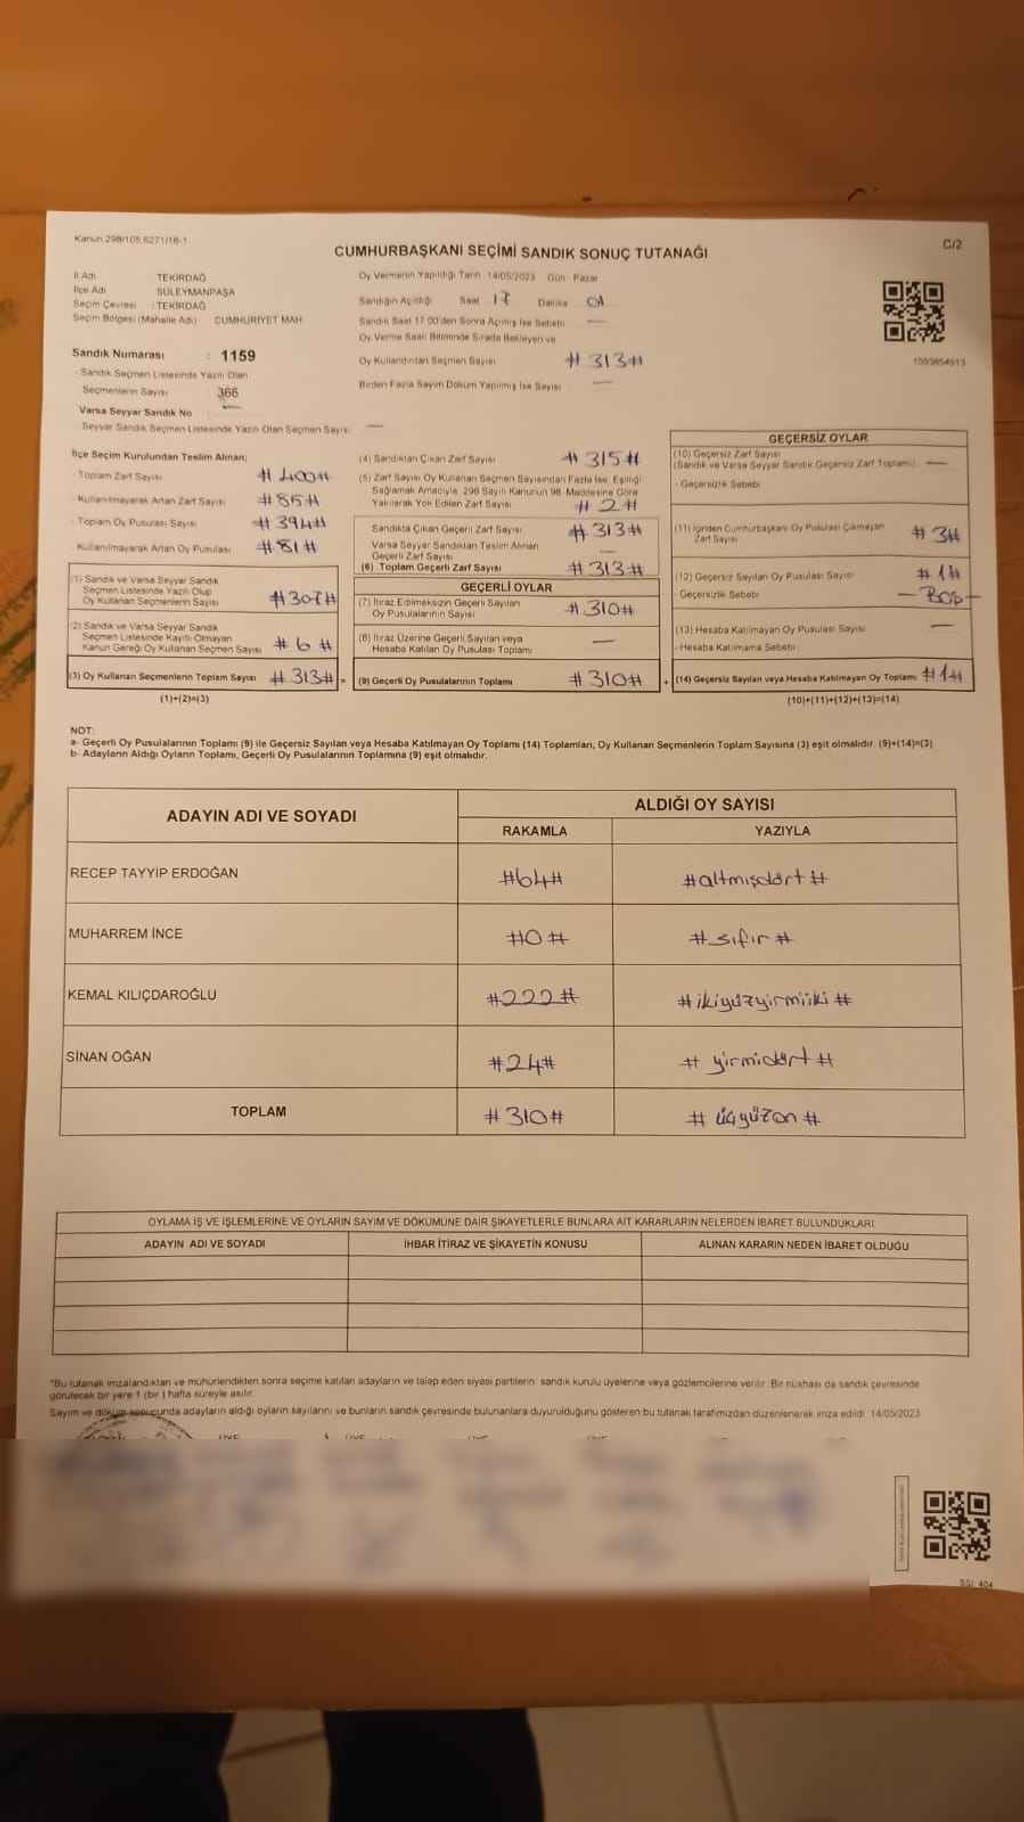 Kanun 298/105,6271/16-1
C/2
CUMHURBAŞKANI SEÇİMİ SANDIK SONUÇ TUTANAĞI
İl Adı TEKİRDAĞ
İlçe Adı SÜLEYMANPAŞA
Seçim Çevresi : TEKİRDAĞ
Seçim Bölgesi (Mahalle Adı) CUMHURİYET MAH.
Sandık Numarası : 1159
- Sandık Seçmen Listesinde Yazılı Olan
Seçmenlerin Sayısı 366
Varsa Seyyar Sandık No —
- Seyyar Sandık Seçmen Listesinde Yazılı Olan Seçmen Sayısı —
Oy Vermenin Yapıldığı Tarih : 14/05/2023 Gün : Pazar
Sandığın Açıldığı Saat 17 Dakika 01
Sandık Saat 17:00'den Sonra Açılmış İse Sebebi —
Oy Verme Saati Bitiminde Sırada Bekleyen ve
Oy Kullandırılan Seçmen Sayısı #313#
Birden Fazla Sayım Döküm Yapılmış İse Sayısı —
İlçe Seçim Kurulundan Teslim Alınan;
- Toplam Zarf Sayısı #400#
- Kullanılmayarak Artan Zarf Sayısı #85#
- Toplam Oy Pusulası Sayısı #394#
- Kullanılmayarak Artan Oy Pusulası #81#
(1) Sandık ve Varsa Seyyar Sandık
Seçmen Listesinde Yazılı Olup
Oy Kullanan Seçmenlerin Sayısı #307#
(2) Sandık ve Varsa Seyyar Sandık
Seçmen Listesinde Kayıtlı Olmayan
Kanun Gereği Oy Kullanan Seçmen Sayısı #6#
(3) Oy Kullanan Seçmenlerin Toplam Sayısı #313# =
(1)+(2)=(3)
(4) Sandıktan Çıkan Zarf Sayısı #315#
(5) Zarf Sayısı Oy Kullanan Seçmen Sayısından Fazla İse, Eşitliği
Sağlamak Amacıyla, 298 Sayılı Kanunun 98. Maddesine Göre
Yakılarak Yok Edilen Zarf Sayısı #2#
Sandıkta Çıkan Geçerli Zarf Sayısı #313#
Varsa Seyyar Sandıktan Teslim Alınan
Geçerli Zarf Sayısı —
(6) Toplam Geçerli Zarf Sayısı #313#
GEÇERLİ OYLAR
(7) İtiraz Edilmeksizin Geçerli Sayılan
Oy Pusulalarının Sayısı #310#
(8) İtiraz Üzerine Geçerli Sayılan veya
Hesaba Katılan Oy Pusulası Toplamı —
(9) Geçerli Oy Pusulalarının Toplamı #310# +
GEÇERSİZ OYLAR
(10) Geçersiz Zarf Sayısı
(Sandık ve Varsa Seyyar Sandık Geçersiz Zarf Toplamı) —
- Geçersizlik Sebebi
(11) İçinden Cumhurbaşkanı Oy Pusulası Çıkmayan
Zarf Sayısı #3#
(12) Geçersiz Sayılan Oy Pusulası Sayısı #1#
- Geçersizlik Sebebi — Boş —
(13) Hesaba Katılmayan Oy Pusulası Sayısı —
- Hesaba Katılmama Sebebi
(14) Geçersiz Sayılan veya Hesaba Katılmayan Oy Toplamı #1#
(10)+(11)+(12)+(13)=(14)
NOT:
a- Geçerli Oy Pusulalarının Toplamı (9) ile Geçersiz Sayılan veya Hesaba Katılmayan Oy Toplamı (14) Toplamları, Oy Kullanan Seçmenlerin Toplam Sayısına (3) eşit olmalıdır. (9)+(14)=(3)
b- Adayların Aldığı Oyların Toplamı, Geçerli Oy Pusulalarının Toplamına (9) eşit olmalıdır.
ADAYIN ADI VE SOYADI
ALDIĞI OY SAYISI
RAKAMLA YAZIYLA
RECEP TAYYİP ERDOĞAN #64# #altmışdört#
MUHARREM İNCE #0# #sıfır#
KEMAL KILIÇDAROĞLU #222# #ikiyüzyirmiiki#
SİNAN OĞAN #24# #yirmidört#
TOPLAM #310# #üçyüzon#
OYLAMA İŞ VE İŞLEMLERİNE VE OYLARIN SAYIM VE DÖKÜMÜNE DAİR ŞİKAYETLERLE BUNLARA AİT KARARLARIN NELERDEN İBARET BULUNDUKLARI
ADAYIN ADI VE SOYADI İHBAR İTİRAZ VE ŞİKAYETİN KONUSU ALINAN KARARIN NEDEN İBARET OLDUĞU
*Bu tutanak imzalandıktan ve mühürlendikten sonra seçime katılan adayların ve talep eden siyasi partilerin sandık kurulu üyelerine veya gözlemcilerine verilir. Bir nüshası da sandık çevresinde
görülecek bir yere 1 (bir) hafta süreyle asılır.
Sayım ve döküm sonucunda adayların aldığı oyların sayılarını ve bunların sandık çevresinde bulunanlara duyurulduğunu gösteren bu tutanak tarafımızdan düzenlenerek imza edildi. 14/05/2023